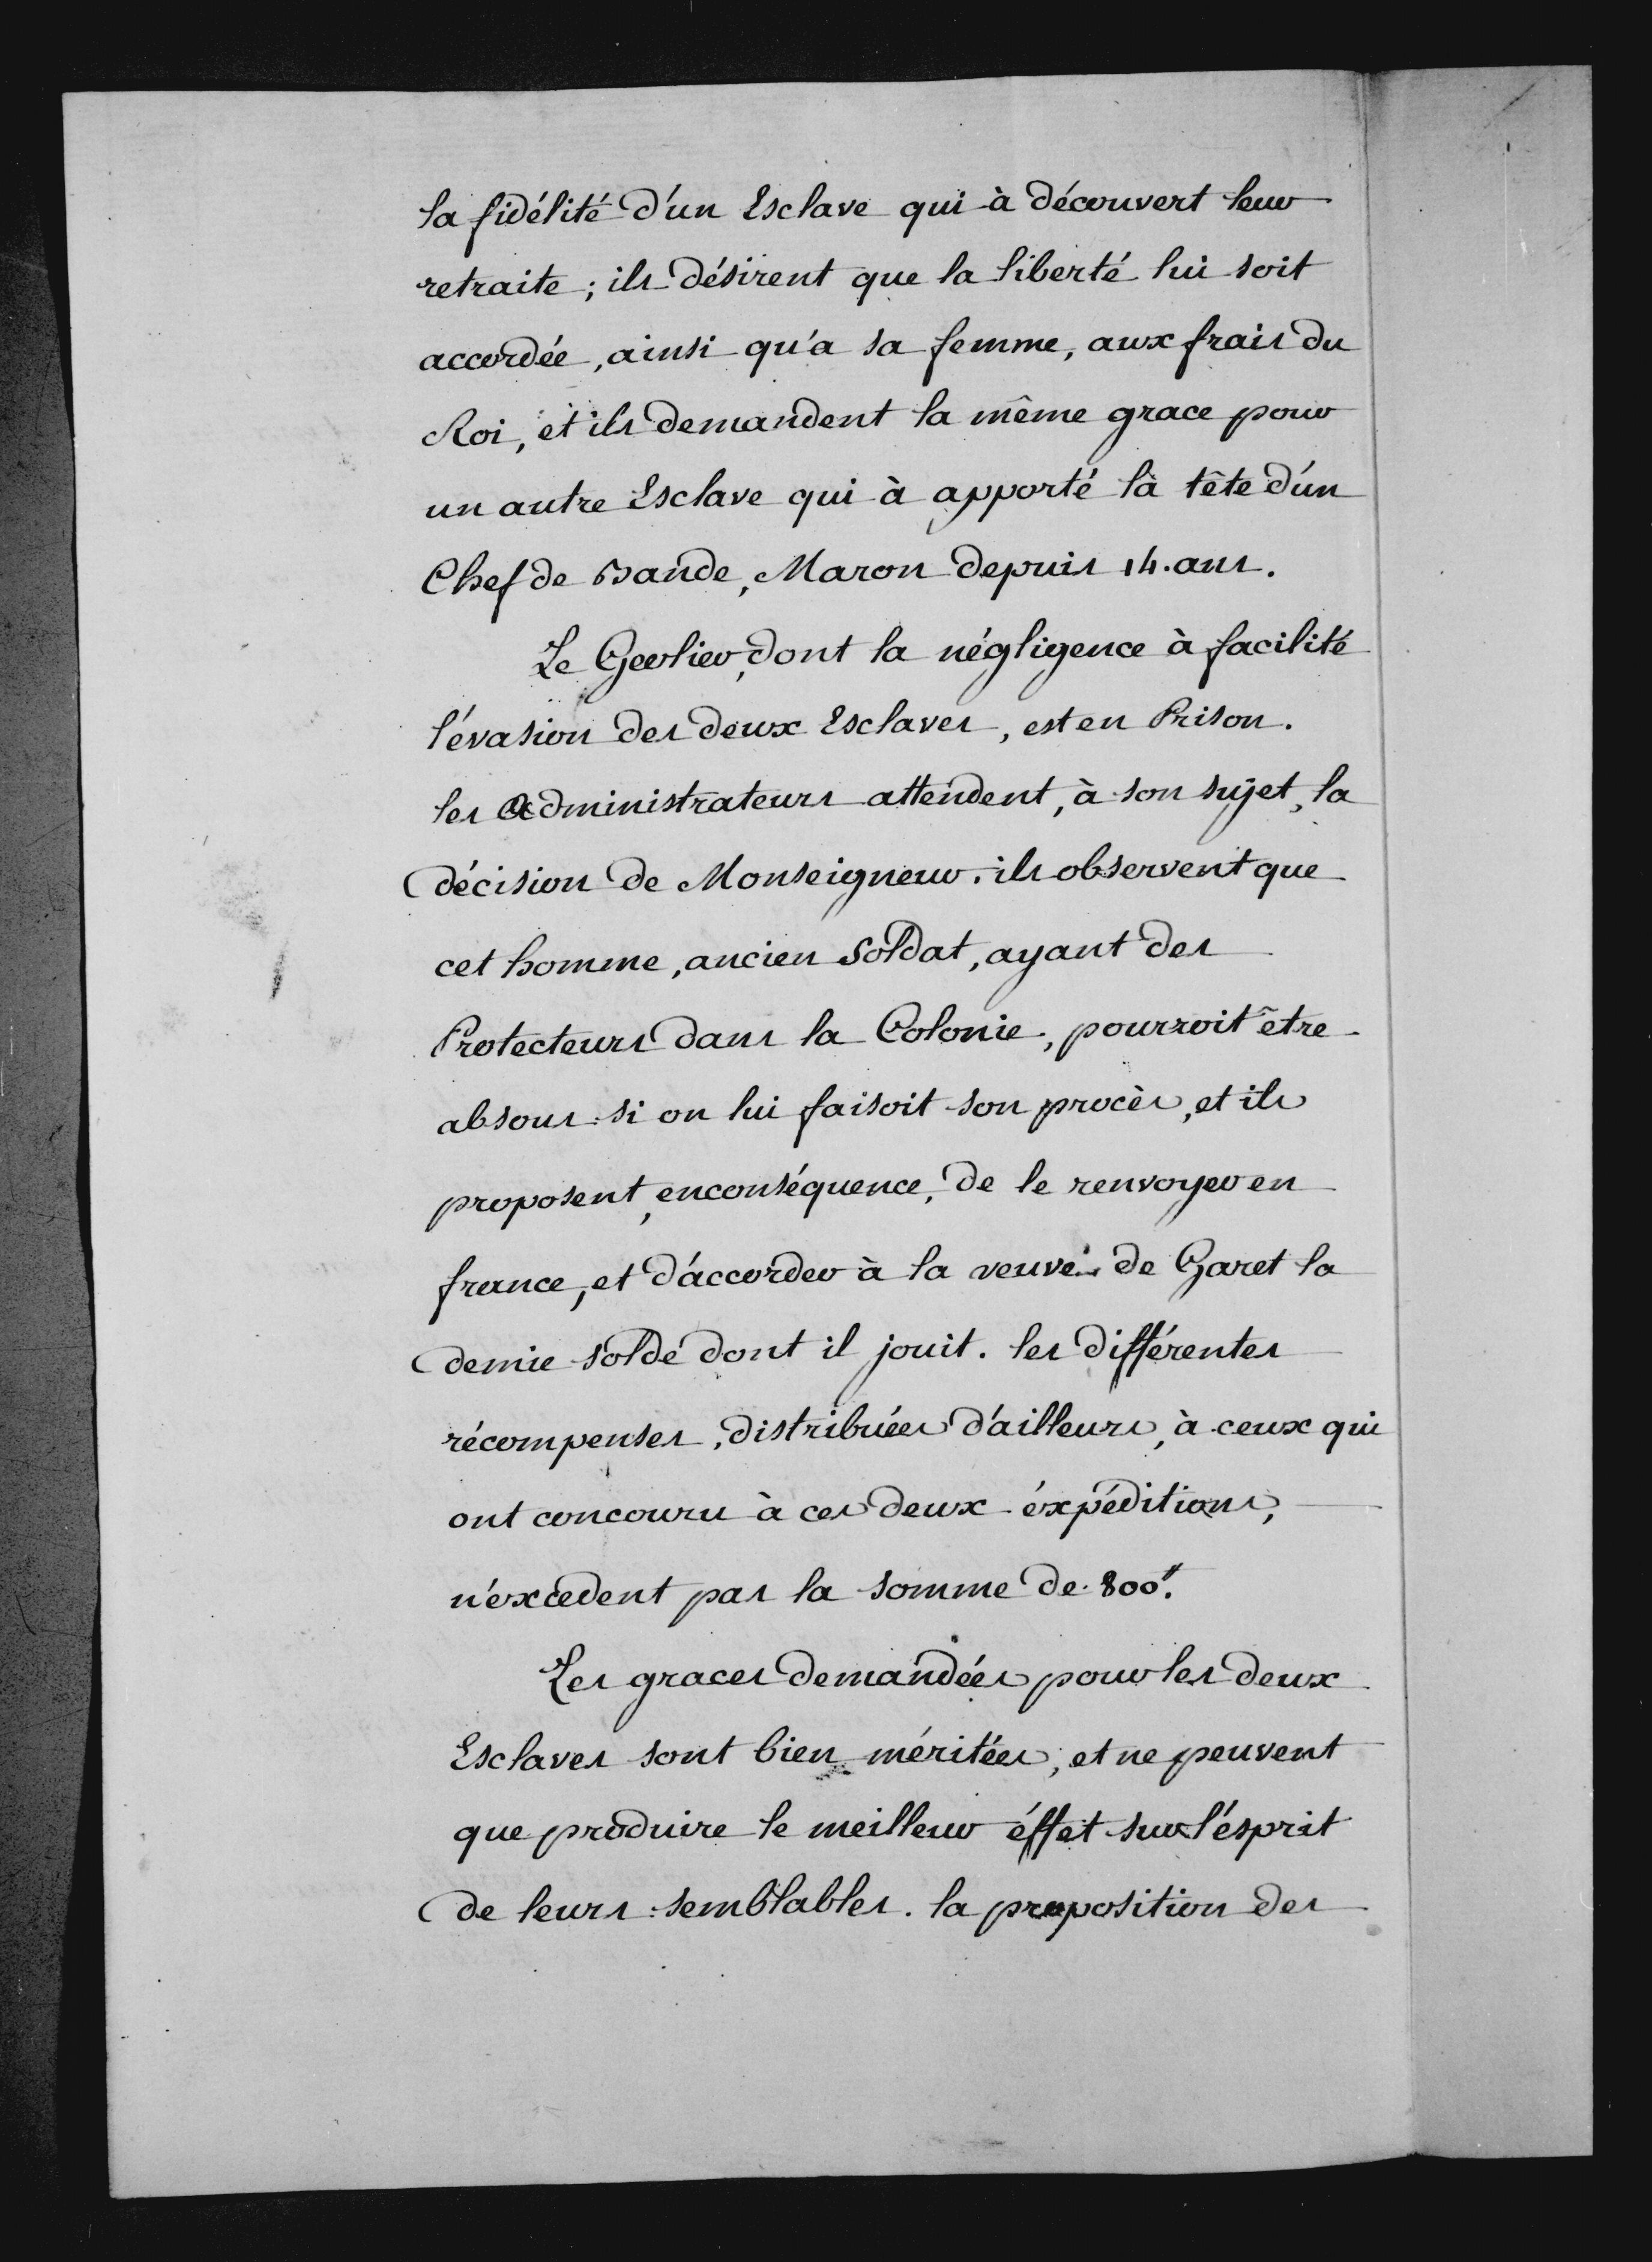 la fidélité d'un Esclave qui à découvert leur
retraite; ils désirent que la liberté lui soit
accordée, ainsi qu'a sa femme, aux frais du
Roi, et ils demandent la même grace pour
un autre Esclave qui à apporté là tête d'un
Chef de Bande, Maron depuis 14. ans.
Le Geolier, dont la négligence à facilité
l'évasion des deux Esclaves, est en Prison.
les administrateurs attendent, à son sujet, la
décision de Monseigneur. ils observent que
cet homme, ancien Soldat, ayant des
Protecteurs dans la Colonie, pourroit être
absous si on lui faisoit son procès, et ils
proposent, enconséquence, de le renvoyer en
france, et d'accorder à la veuve de Garet la
demie solde dont il jouit. les différentes
récompenses, distribuées d'ailleurs, à ceux qui
ont concouru à ces deux éxpéditions,
n'excedent pas la somme de 800ᵗ.
Les graces demandées pour les deux
Esclaves sont bien méritées, et ne peuvent
que produire le meilleur éffet sur l'ésprit
de leurs semblables. la proposition des